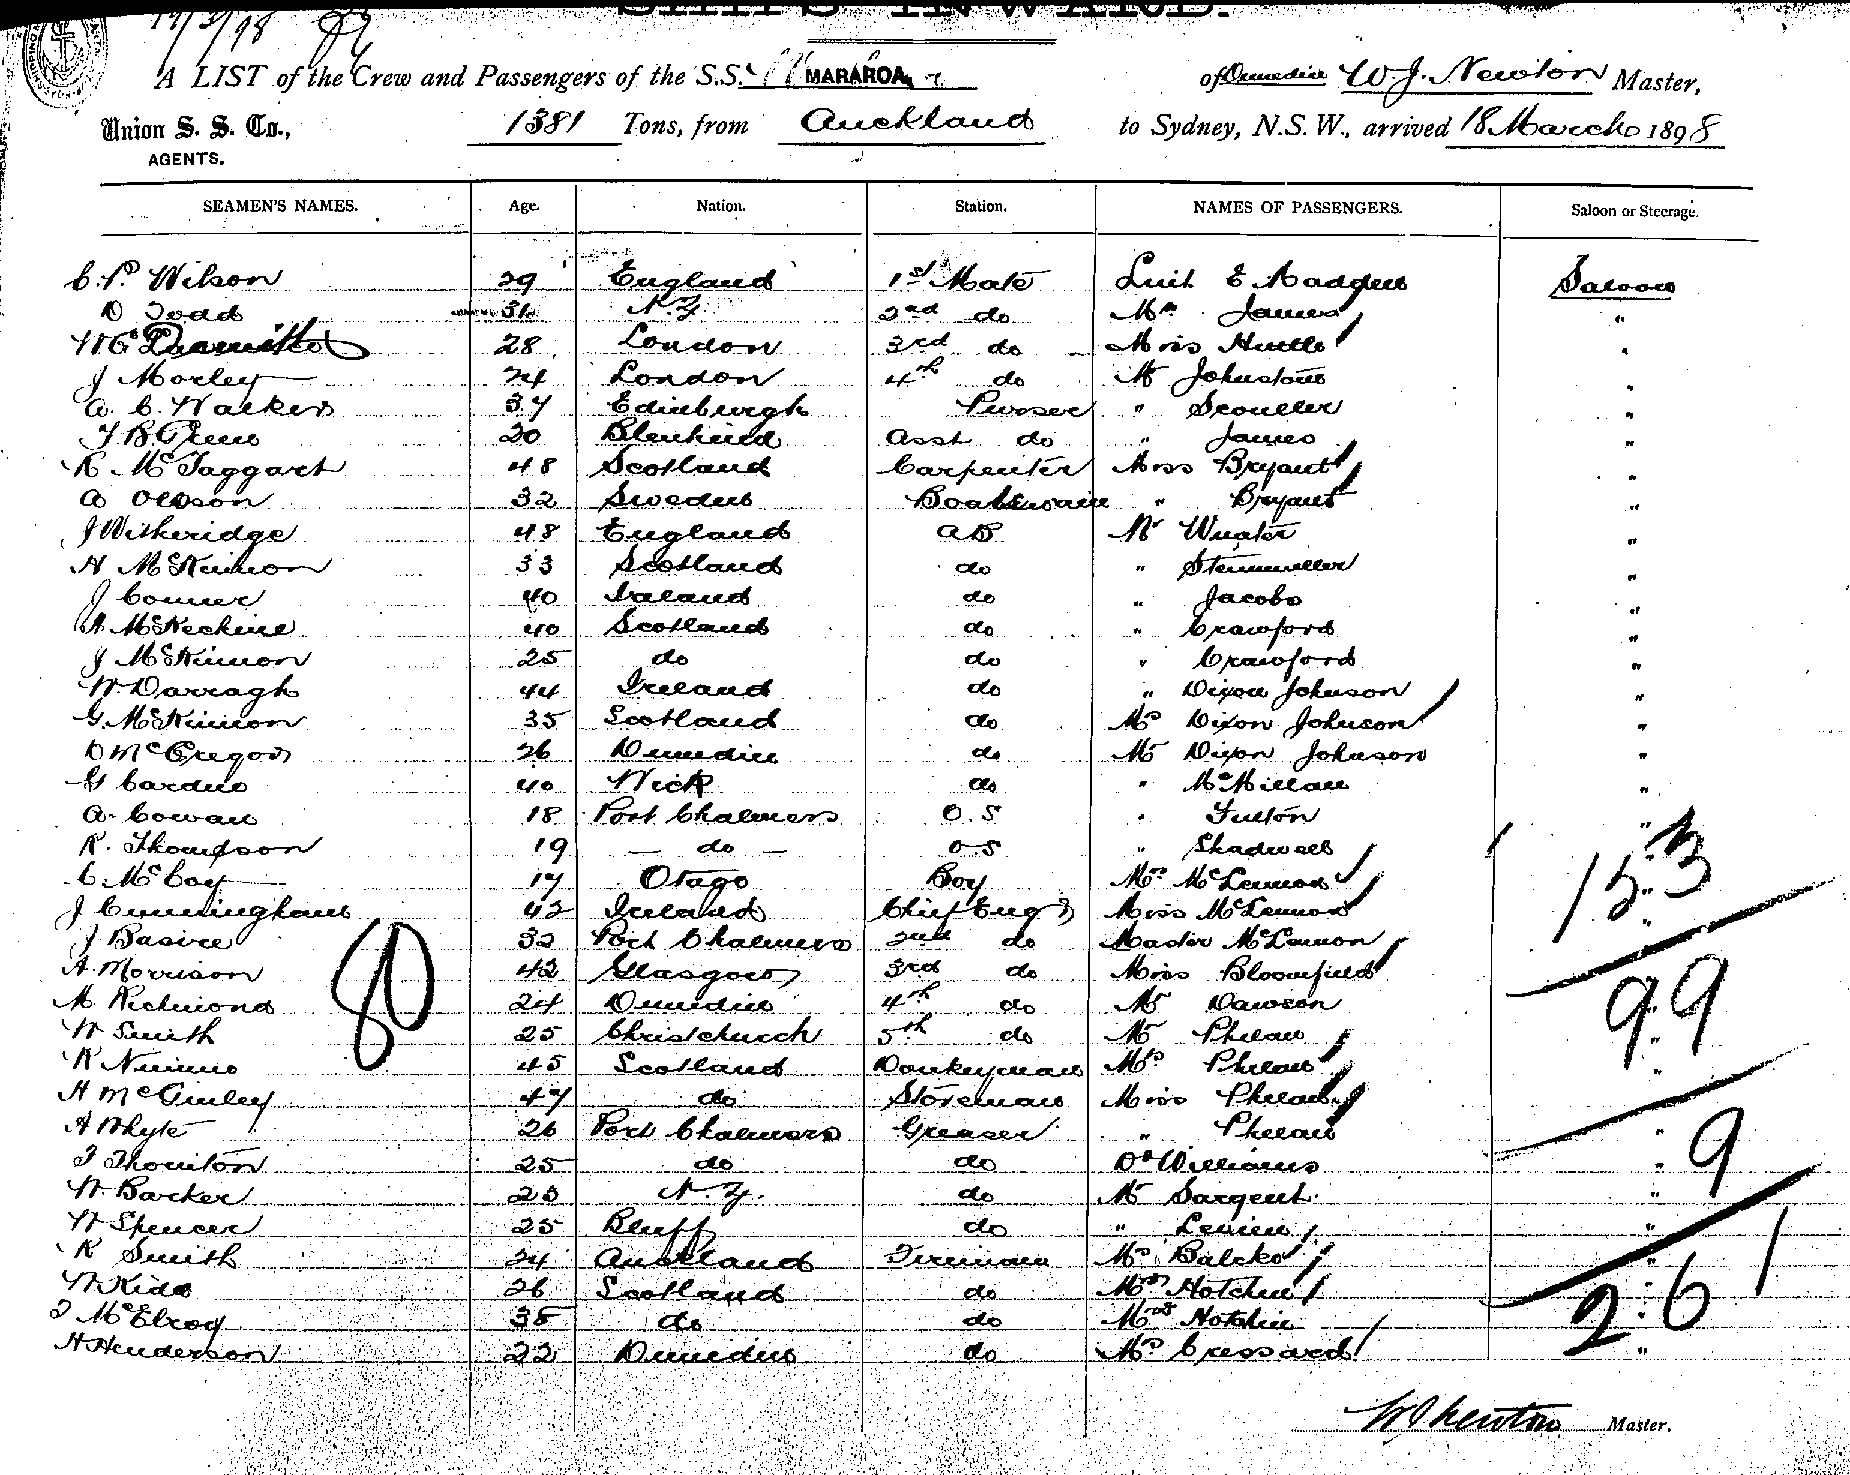 SHIPS INWARD.
17/3/98
A LIST of the Crew and Passengers of the S.S. MARAROA of Dunedin W. J. Newton Master,
Union S. S. Co., 1381 Tons, from Auckland to Sydney, N.S.W., arrived 18 March 1898
AGENTS.
SEAMEN'S NAMES. Age. Nation. Station. NAMES OF PASSENGERS. Saloon or Steerage.
C. P. Wilson 29 England 1st Mate E Madden Saloon
D Todd 31 N.Z. 2nd do Mrs James "
28 London 3rd do Miss "
J Morley 24 London 4th do Mr Johnstone "
A. C. Walker 37 Edinburgh Purser " Scouller "
20 Blenheim Asst do " James "
R McTaggart 48 Scotland Carpenter Miss Bryant "
A Olsson 32 Sweden Boatswain " Bryant "
J Witheridge 48 England AB Mr "
A McKinnon 33 Scotland do " "
J Conner 40 Ireland do " Jacobs "
A McKechnie 40 Scotland do " Crawford "
J McKinnon 25 do do " Crawford "
W Darragh 44 Ireland do " Dixon Johnson "
G. McKinnon 35 Scotland do Mrs Dixon Johnson "
D McGregor 26 Dunedin do Mr Dixon Johnson "
G Carduo 40 Wick do " McMillan "
A. Cowan 18 Port Chalmers O.S " Fulton "
R. Thompson 19 — do — O.S " Shadwell
C McCoy 17 Otago Boy Mrs McLennon 153
J Cunningham 42 Ireland Chief Engr Miss McLennon "
J Basire 32 Port Chalmers 2nd do Master McLennon
A Morrison 42 Glasgow 3rd do Miss Bloomfield
M Richmond 80 24 Dunedin 4th do Mr Dawson 99
W Smith 25 Christchurch 5th do Mr Phelan
R Nimmo 45 Scotland Donkeyman Mrs Phelan "
H McGinley 47 do Storeman Miss Phelan
A Whyte 26 Port Chalmers Greaser " Phelan "
T Thornton 25 do do Dr Williams " 9
W. Barker 25 N.Z. do Mr Sargent "
W Spencer 25 Bluff do " Levien "
R Smith 24 Auckland Fireman Mrs "
W Kidd 26 Scotland do Mrs Hotchin 261
T McElroy 35 do do Hotchin
H Henderson 22 Dunedin do Mrs Cressard "
W J Newton Master.